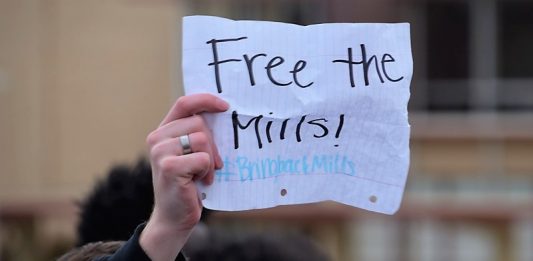 Free the
Mills!
#BringbackMills